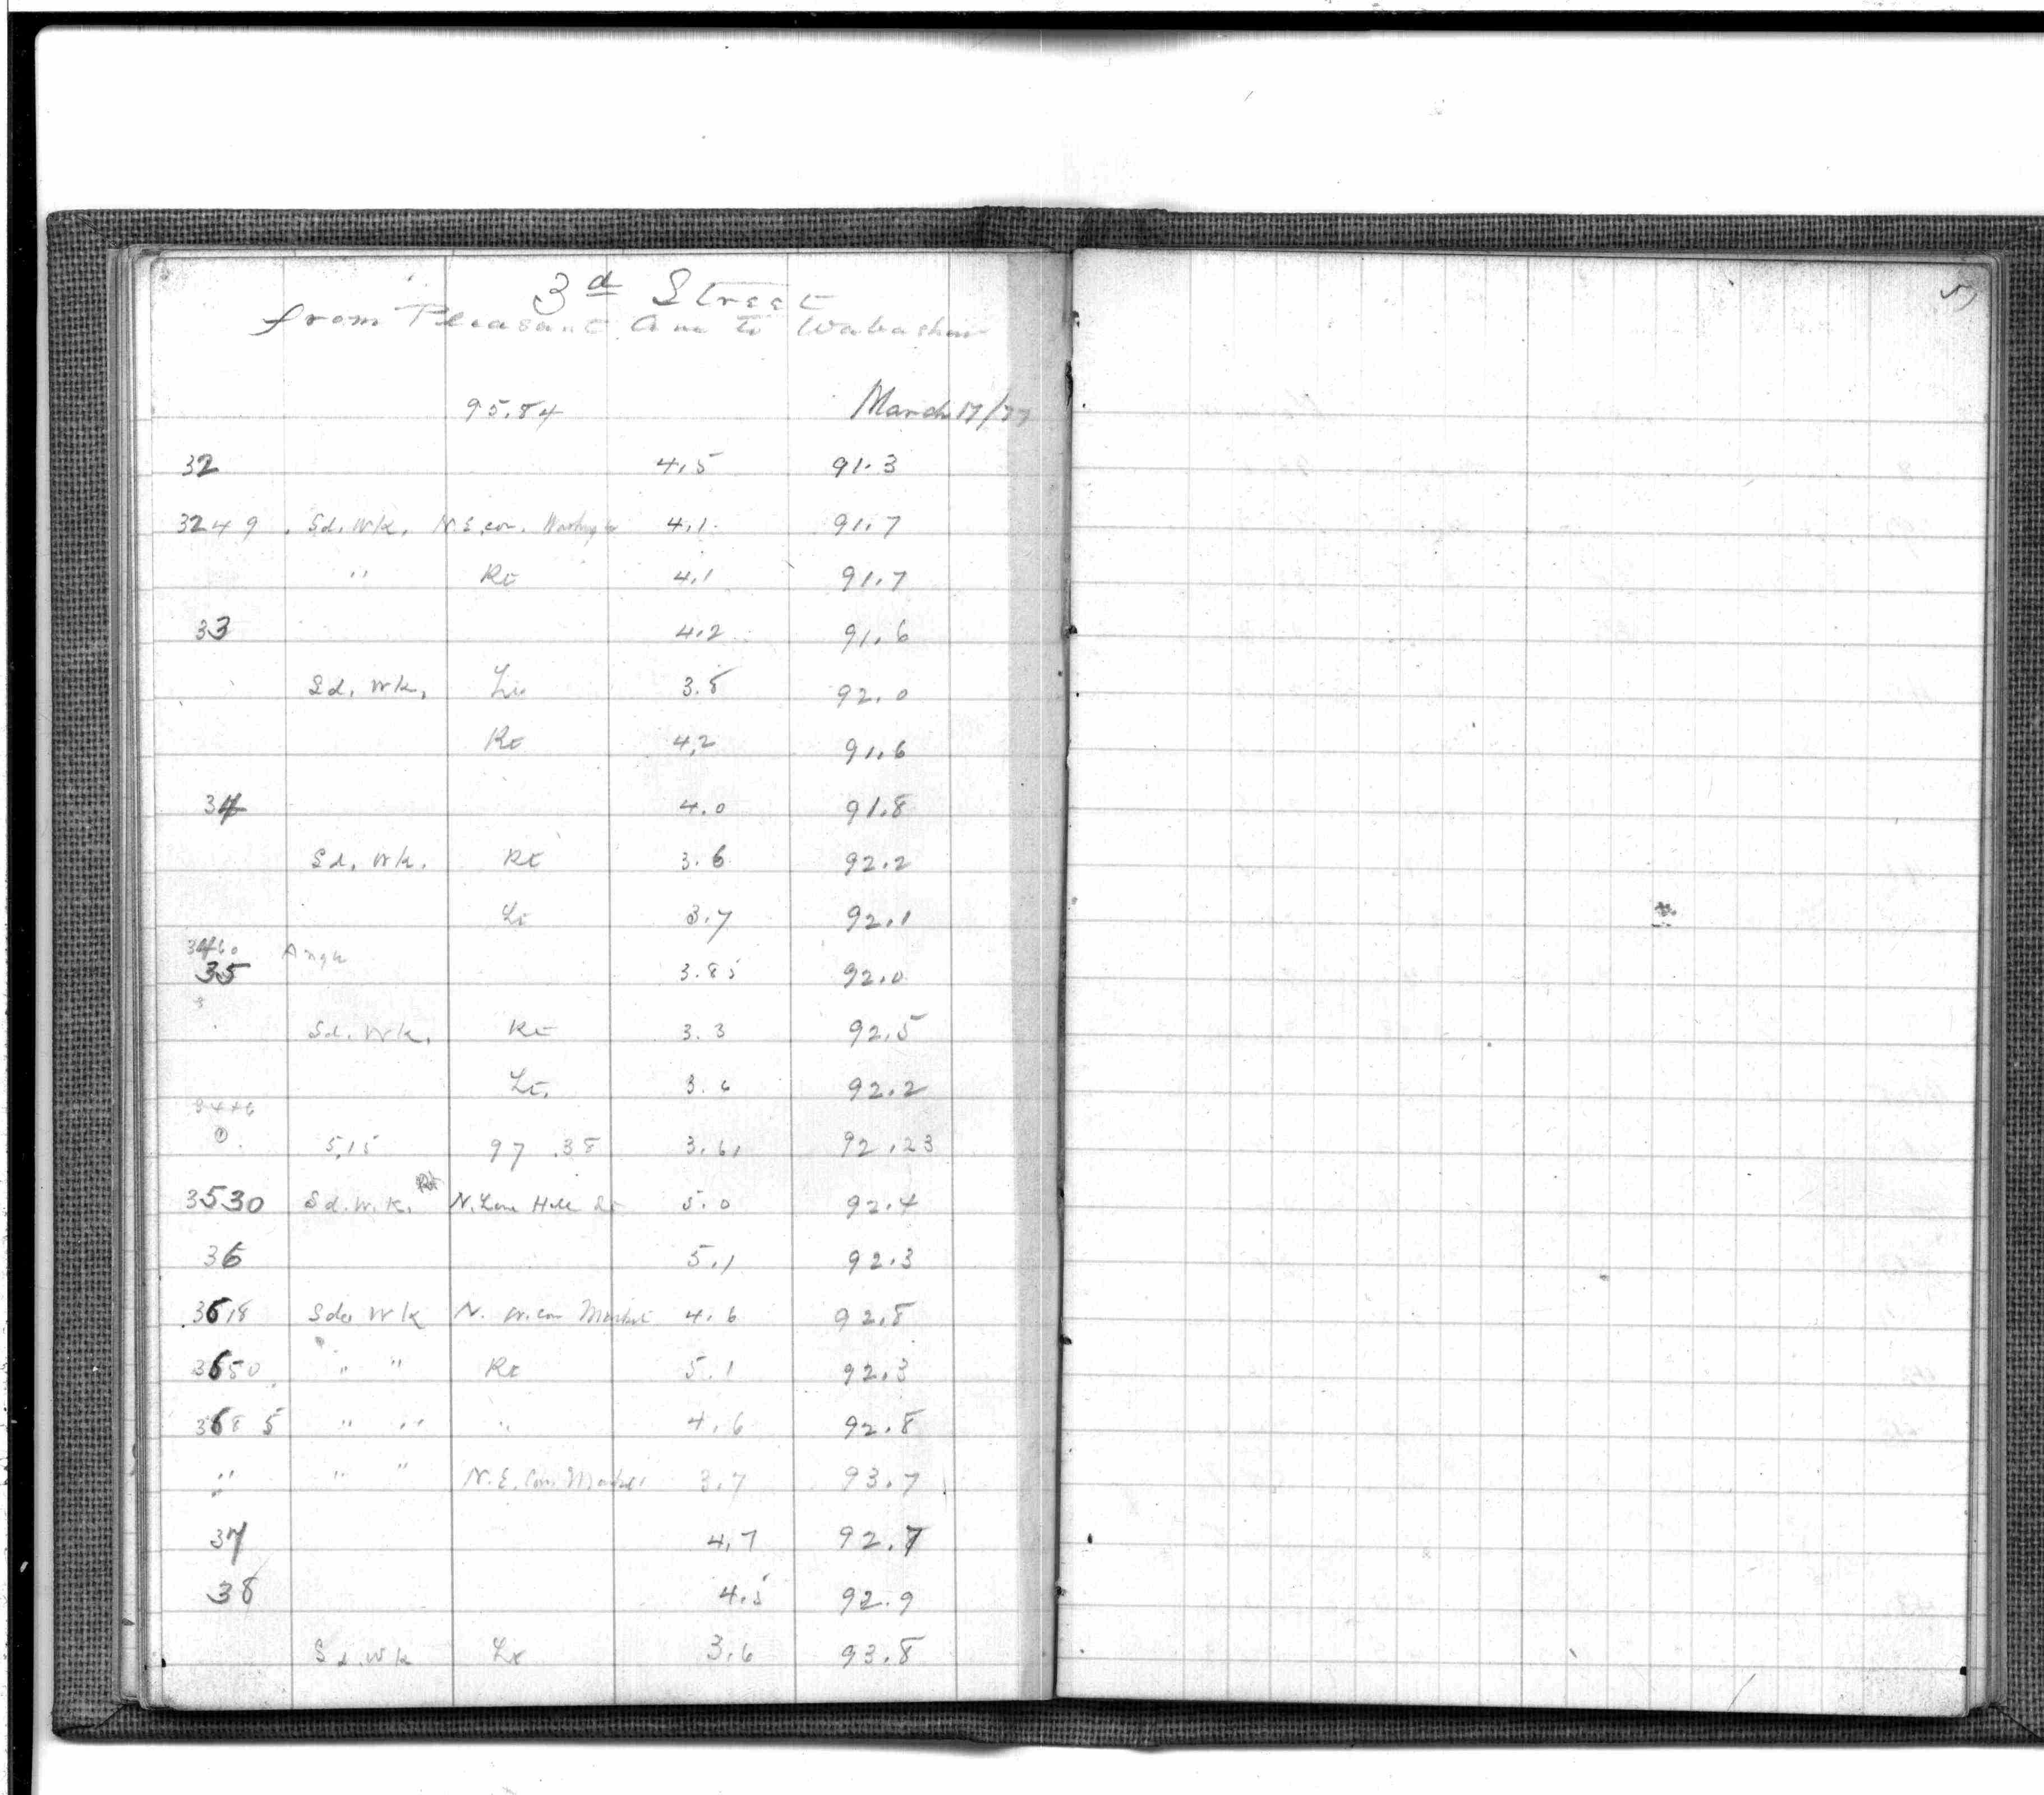 3d Street
from Pleasant Ave to Wabashaw
95.84 March 17/77
32 4.5 91.3
3249 Sd. Wk. N.E. cor. 4.1 91.7
" Rt 4.1 91.7
33 4.2 91.6
Sd. Wk. Lt 3.8 92.0
Rt 4.2 91.6
34 4.0 91.8
Sd. Wk. Rt 3.6 92.2
Lt 3.7 92.1
3460 Angle
35 3.85 92.0
Sd. Wk. Rt 3.3 92.5
Lt. 3.6 92.2
34+6
5.15 97.38 3.61 92.23
3530 Sd. W.K. Rt N. Line Hill St 5.0 92.4
36 5.1 92.3
3618 Sd. Wk N. W. cor Market 4.6 92.8
3650 " " Rt 5.1 92.3
3685 " " " 4.6 92.8
" " " N.E. Cor. Market 3.7 93.7
37 4.7 92.7
38 4.5 92.9
Sd. Wk Lt 3.6 93.8